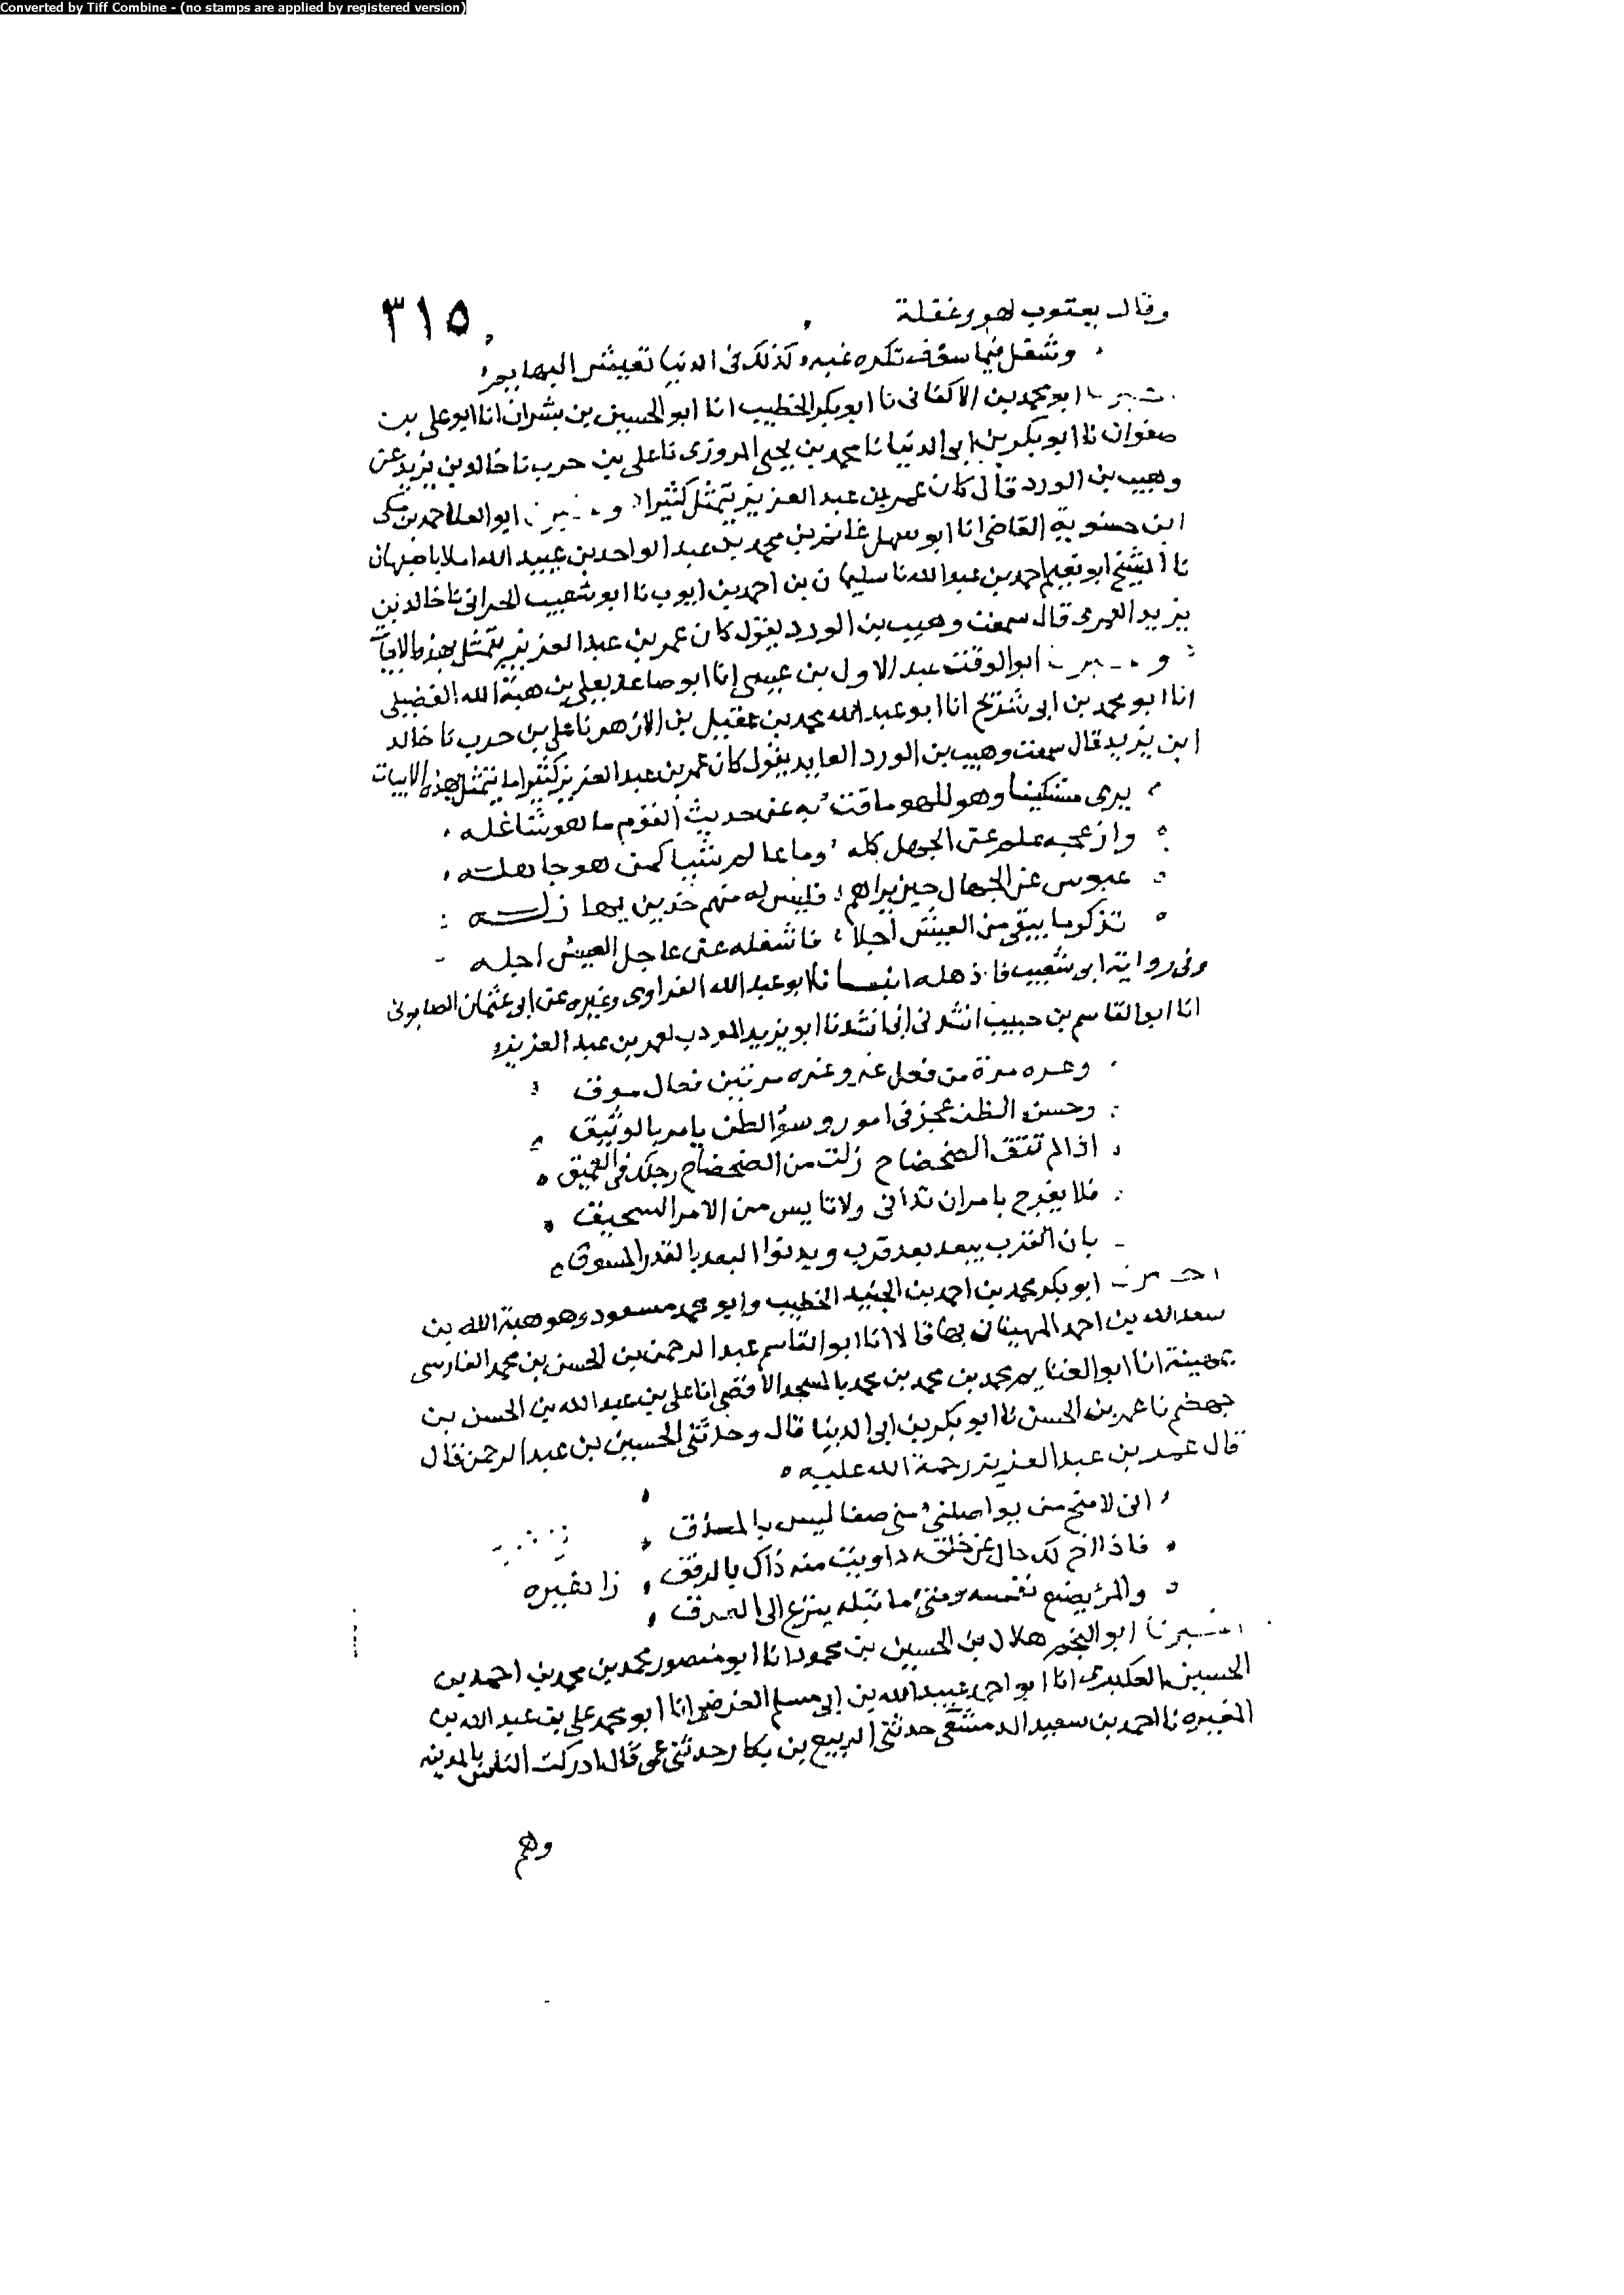 Converted by Tiff Combine - (no stamps are applied by registered version)
وقال يعقوب لهو وغفلة
٣١٥
وشغل فيما سوف تكره غبه وكذلك في الدنيا تعيش البهايم
ابو محمد بن الاكفانى نا ابو بكر الخطيب انا ابو الحسين بن بشران انا ابو على بن
صفوان نا ابو بكر بن ابى الدنيا نا محمد بن يحيى المروزى نا على بن حرب نا خالد بن يزيد عن
وهيب بن الورد قال كان عمر بن عبد العزيز يتمثل كثيرا ابو العلا احمد بن مكى
ابن حسنوية القاضى انا ابو سهل غانم بن محمد بن عبد الواحد بن عبيد الله املا باصبهان
نا الشيخ ابو نعيم احمد بن عبد الله نا سليمان بن احمد بن ايوب نا ابو شعيب الحرانى نا خالد بن
يزيد العمرى قال سمعت وهيب بن الورد يقول كان عمر بن عبد العزيز يتمثل بهذه الابيات
ابو الوقت عبد الاول بن عيسى انا ابو صاعد يعلى بن هبة الله الفضيلى
انا ابو محمد بن ابى شريح انا ابو عبد الله محمد بن عقيل بن الازهر نا على بن حرب نا خالد
ابن يزيد قال سمعت وهيب بن الورد العابد يقول كان عمر بن عبد العزيز كثيرا ما يتمثل بهذه الابيات
يرى مستكينا وهو للهو ماقت به عن حديث القوم ما هو شاغله
وازعجه علم عن الجهل كله وما عالم شيا كمن هو جاهله
عبوس عن الجهال حين يراهم فليس له منهم خدين يهازله
تذكر ما يبقى من العيش اجلا فاشغله عن عاجل العيش اجله
وفى رواية ابى شعيب فاذهله انبانا ابو عبد الله الفراوى وغيره عن ابى عثمان الصابونى
انا ابو القاسم بن حبيب انشدنى ابى انشدنا ابو يزيد المودب لعمر بن عبد العزيز
وغره مرة من فعل غر وغره مرتين فعال موق
وحسن الظن عجز فى امور وسؤ الظن يامر بالوثيق
اذا لم تتق الضحضاح زلت من الضحضاح رجلك فى العميق
فلا يفرح بامران تدانى ولا تايس من الامر السحيق
بان القرب يبعد بعد قرب ويدنوا البعد بالقدر المسوق
ابو بكر محمد بن احمد بن الجنيد الخطيب وابو محمد مسعود وهو هبة الله بن
سعد الله بن احمد المهينان بها قالا انا ابو القاسم عبد الرحمن بن الحسن بن محمد الفارسى
بمهينة انا ابو الغنايم محمد بن محمد بن محمد بالمسجد الاقصى انا على بن عبد الله بن الحسن بن
جهضم نا عمر بن الحسن نا ابو بكر بن ابى الدنيا قال وحدثنى الحسين بن عبد الرحمن قال
قال عمر بن عبد العزيز رحمة الله عليه
انى لامنح من يواصلنى منى صفا ليس بالمذق
فاذا اخ لك حال عن خلق داويت منه ذاك بالرفق
زا غيره
والمرؤ يصنع نفسه ومتى ما تبله ينزع الى العرق
اخبرنا ابو النجم هلال بن الحسين بن محمود انا ابو منصور محمد بن محمد بن احمد بن
الحسين العكبرى انا ابو احمد عبيد الله بن ابى مسلم الفرضى انا ابو محمد على بن عبد الله بن
المغيره نا احمد بن سعيد الدمشقى حدثنى الزبير بن بكار حدثنى عمى قال ادركت الناس بالمدينه
وهم